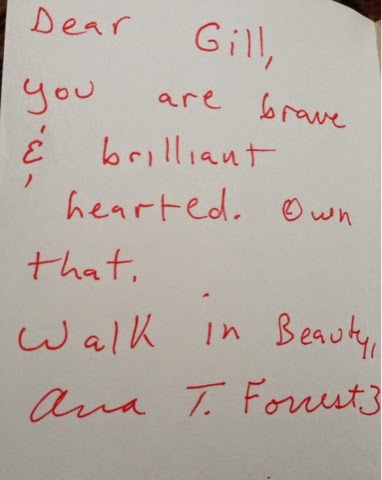 Dear Gill,
you are brave
& brilliant
hearted. Own
that.
Walk in Beauty,
Ana T. Forrest